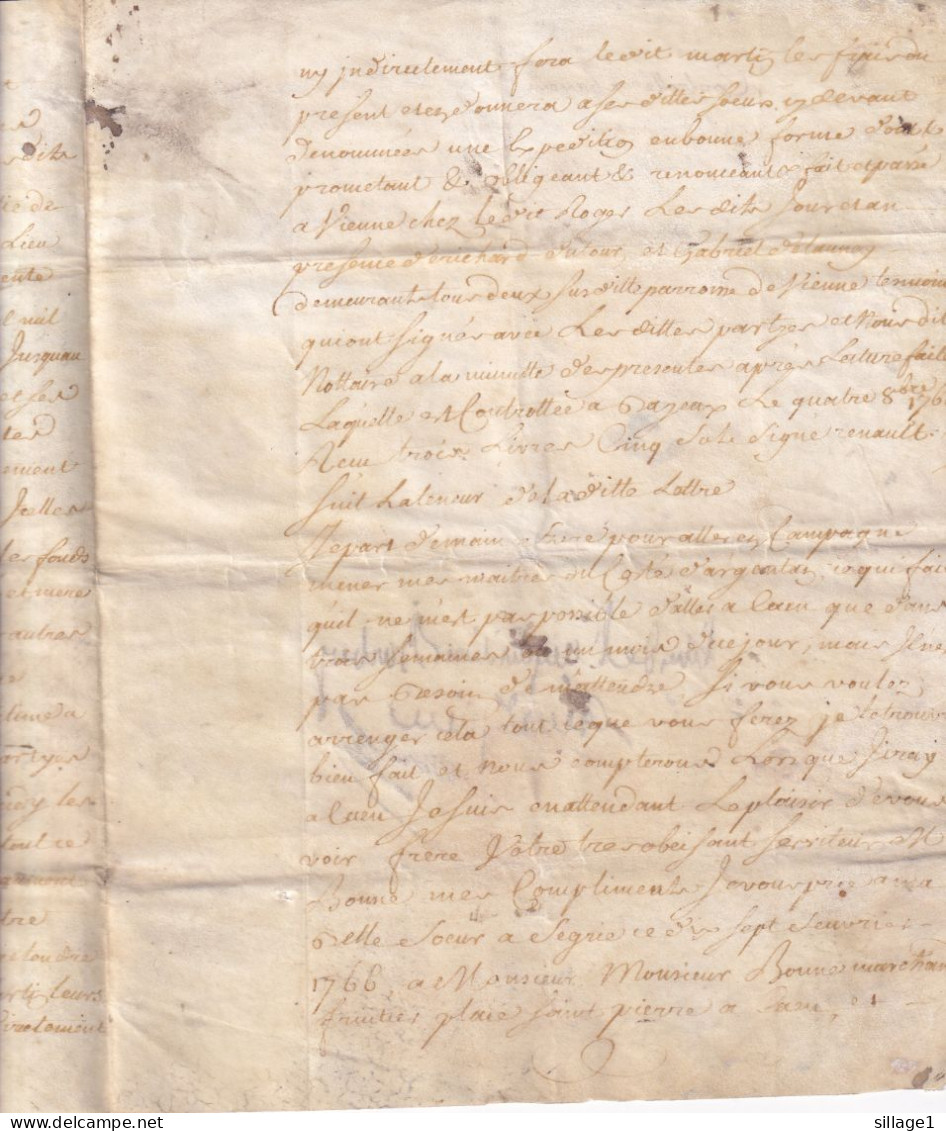 t
es
dits
cie de
Lieu
ente
C nuil
Jusquau
et ses
tes
ement
Jcelles
les fonds
et mere
autres
e
artyes
les
tout ce
tre
leurs
directement
ny jndirectement fera ledit marti les frais du
present et en donnera a ses dittes soeurs cy devant
denommées une Expedition en bonne forme dont
prometant & obligeant & renonceant & fait et passé
a Vienne chez ledit Roger Lesdits Jour et an
presence de richard Dutour, et Gabriel Delaunay
demeurants tous deux sus ditte parroisse de Vienne temoins
qui ont signés avec Les dittes partyes et Nous dit
Nottaire a la minutte des presentes après Lecture faite
Laquelle est Controllée a Bayeux Le quatre 8bre 176
Receu trois Livres Cinq sols signé renault
suit La teneur de la ditte Lettre
Je part demain frere pour aller en Campagne
mener mes maitres du Costé d'argentan, ce qui fait
quil ne m'est pas possible d'aller a Caen que dans
trois semaines ou un mois de ce jour, mais Il nest
pas besoin de m'attendre si vous voulez
arrenger cela tout ce que vous ferez je le trouve
bien fait et nous compterons Lorsque J'iray
a Caen Je suis en attendant Le plaisir de vous
voir frere Votre tres obeisant serviteur M
Bonne mes Compliments Je vous prie a ma
belle soeur a Segrie ce dix sept feuvrier
1766 a Monsieur Monsieur Bonne marchand
fruitier place saint pierre a Caen,
sillage1